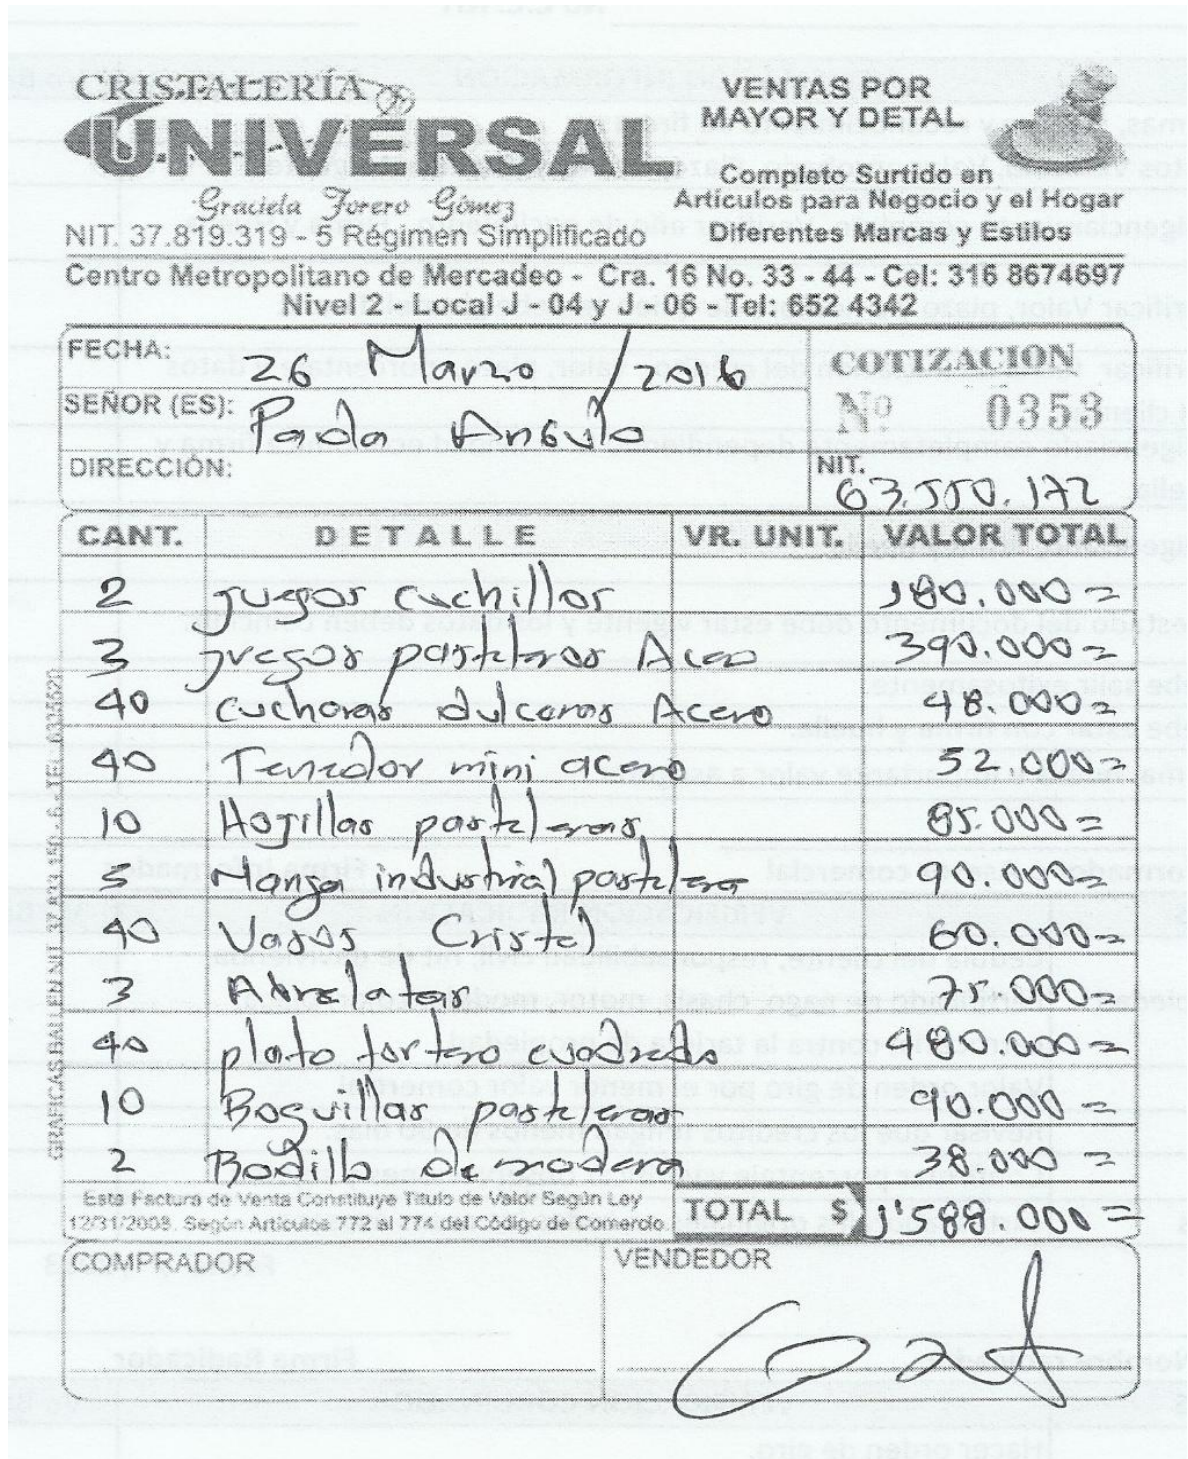 CRISTALERÍA
UNIVERSAL
Graciela Forero Gómez
NIT. 37.819.319 - 5 Régimen Simplificado
VENTAS POR
MAYOR Y DETAL
Completo Surtido en
Artículos para Negocio y el Hogar
Diferentes Marcas y Estilos
Centro Metropolitano de Mercadeo - Cra. 16 No. 33 - 44 - Cel: 316 8674697
Nivel 2 - Local J - 04 y J - 06 - Tel: 652 4342
FECHA: 26 Marzo / 2016
COTIZACION
Nº 0353
SEÑOR (ES): Paola Angulo
DIRECCIÓN:
NIT. 63.550.172
CANT. DETALLE VR. UNIT. VALOR TOTAL
2 juegos cuchillos 180.000=
3 juegos pasteleros Acero 390.000=
40 cucharas dulceras Acero 48.000=
40 Tenedor mini acero 52.000=
10 Hojillas pasteleras 85.000=
5 Manga industrial pastelera 90.000=
40 Vasos Cristal 60.000=
3 Abrelatas 75.000=
40 plato tortero cuadrado 480.000=
10 Boquillas pasteleras 90.000=
2 Rodillo de madera 38.000=
Esta Factura de Venta Constituye Titulo de Valor Según Ley
12/31/2008. Según Artículos 772 al 774 del Código de Comercio.
TOTAL $ 1'588.000=
COMPRADOR
VENDEDOR